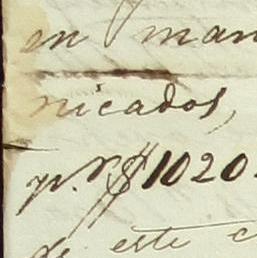 en man
nicados,
p.r $1020.
de este c